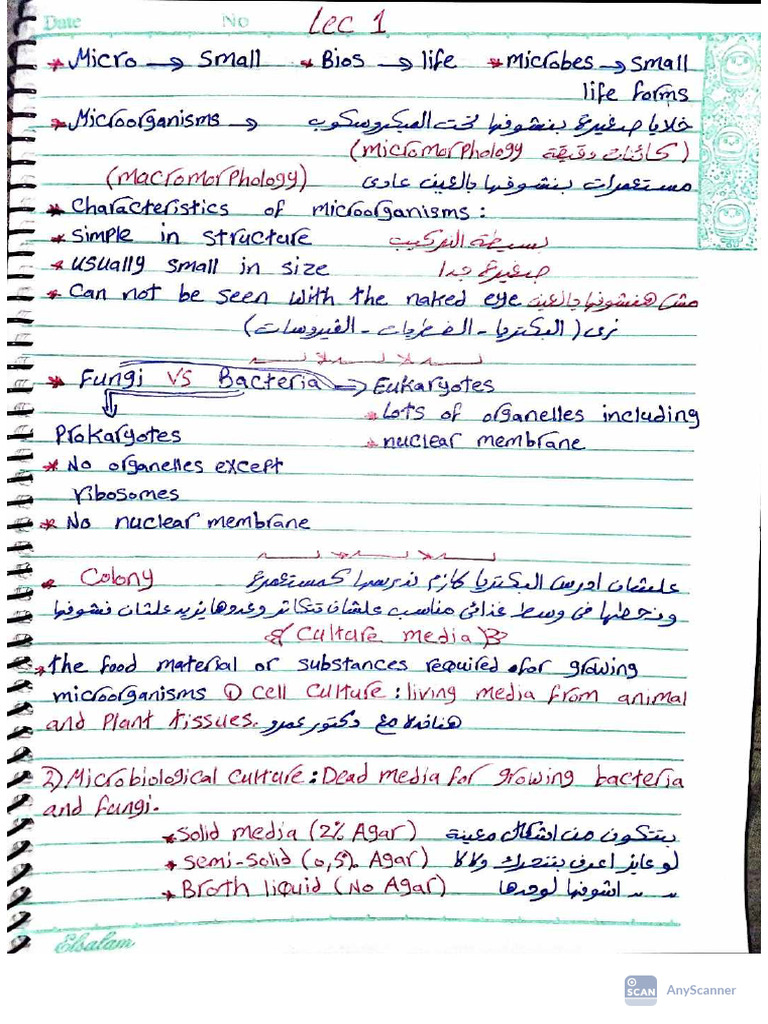 Date No Lec 1
* Micro → small * Bios → life * microbes → small
life forms
* Microorganisms → خلايا صغيرة بنشوفها تحت الميكروسكوب
(كائنات دقيقة micromorphology)
(macromorphology) مستعمرات بنشوفها بالعين عادى
* Characteristics of microorganisms :
* simple in structure بسيطة التركيب
* usually small in size صغيرة جدا
* Can not be seen with the naked eye مش هنشوفها بالعين
نرى (البكتريا - الفطريات - الفيروسات)
* Fungi VS Bacteria → Eukaryotes
* Lots of organelles including
Prokaryotes * nuclear membrane
* No organelles except
ribosomes
* No nuclear membrane
* Colony علشان ادرس البكتريا لازم ندرسها كمستعمرة
ونحطها فى وسط غذائى مناسب علشان تتكاثر وعددها يزيد علشان نشوفها
{ Culture media }
* the food material or substances required for growing
microorganisms ① cell culture : living media from animal
and Plant tissues. هناخدة مع دكتور عمرو
2) Microbiological culture : Dead media for growing bacteria
and fungi.
* solid media (2% Agar) بتتكون من اشكال معينة
* semi-solid (0,5% Agar) لو عايز اعرف بتتحرك ولا لا
* Broth liquid (No Agar) " " اشوفها لوحدها
Elsalam
SCAN AnyScanner